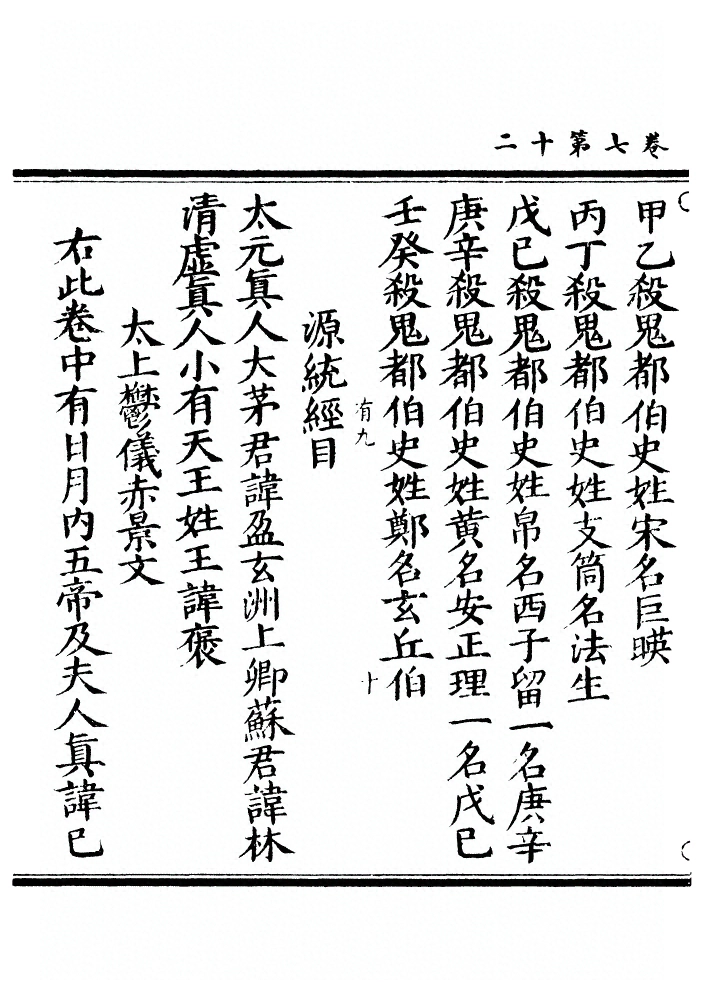 卷七第十二
甲乙殺鬼都伯史姓宋名巨暎
丙丁殺鬼都伯史姓支筒名法生
戊巳殺鬼都伯史姓帛名西子留一名庚辛
庚辛殺鬼都伯史姓黄名安正理一名戊巳
壬癸殺鬼都伯史姓鄭名玄丘伯
有九
十
源統經目
太元眞人大茅君諱盈玄洲上卿蘇君諱林
清虛眞人小有天王姓王諱褒
太上鬱儀赤景文
右此卷中有日月内五帝及夫人眞諱巳